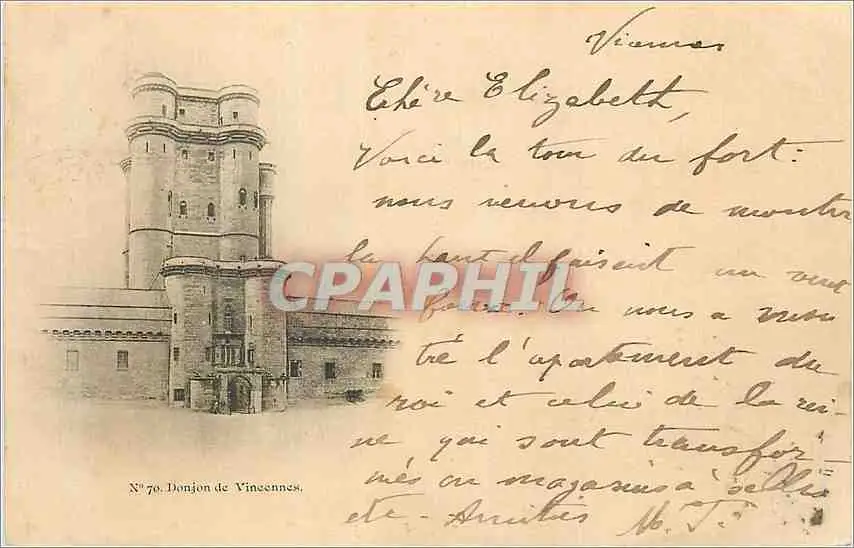 Chère Elizabeth,
Voici la tour du fort:
nous venons de monter
la haut il faisait un vent
fou. On nous a mon
tré l'apartement du
roi et celui de la rei-
ne qui sont transfor-
més en magasins à selles
etc - Amitiés M. T.
CPAPHIL
N° 70. Donjon de Vincennes.